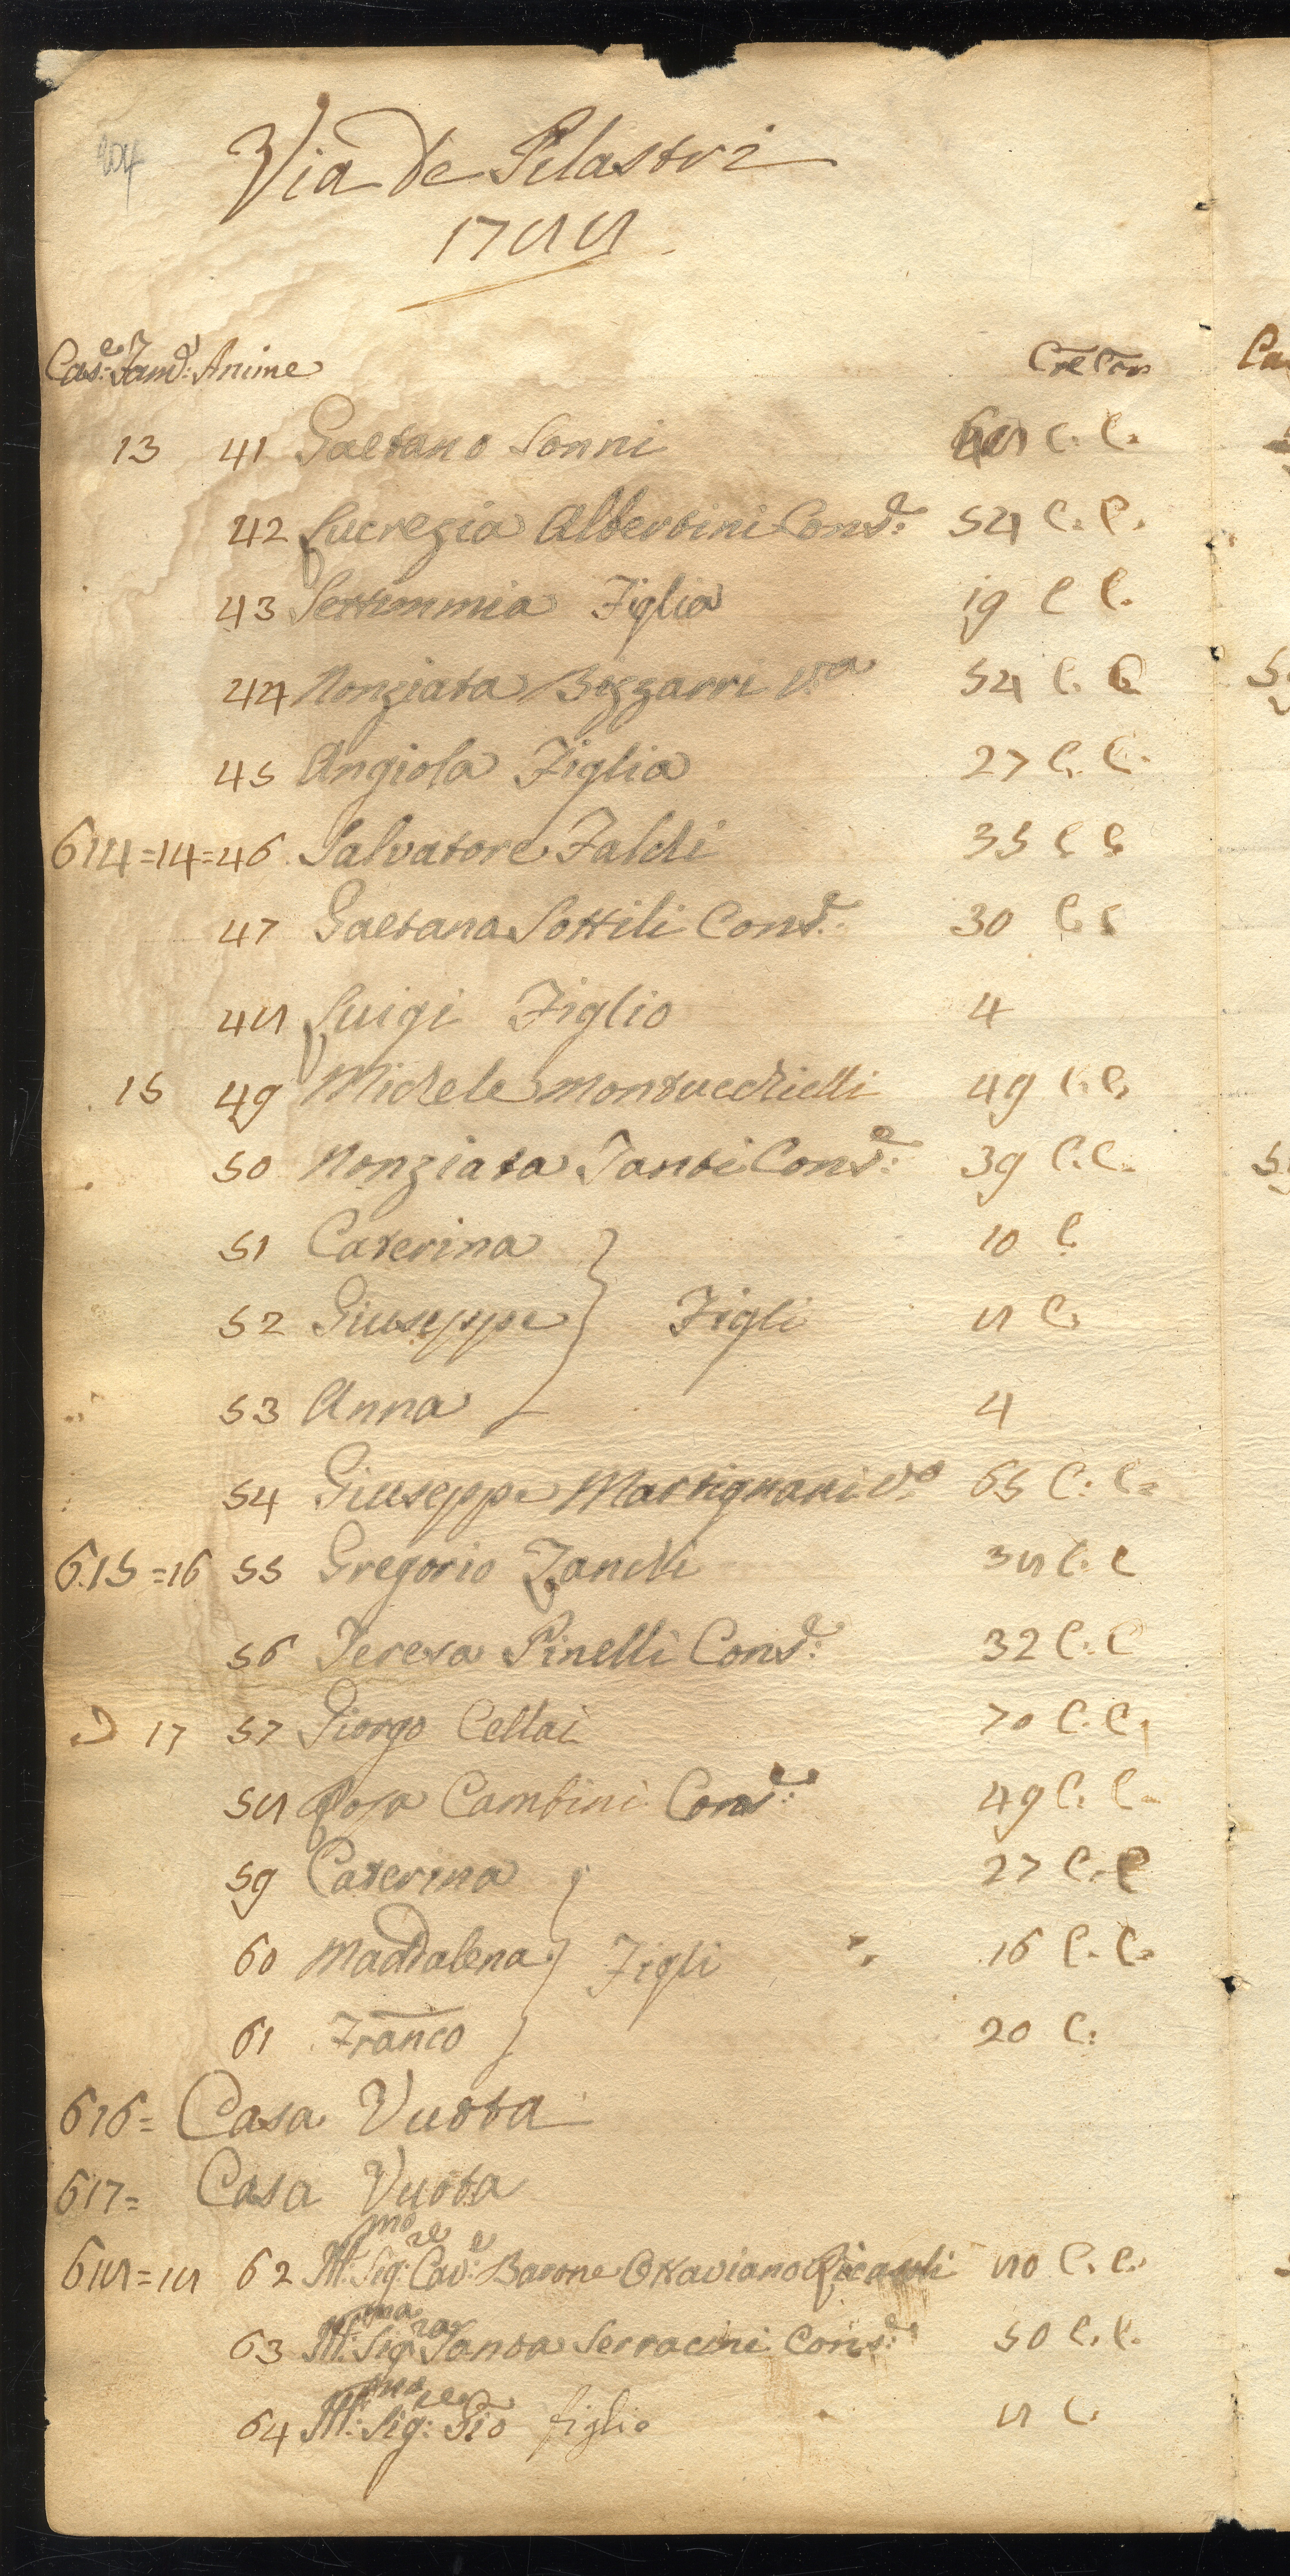 204
Via de Pilastri
1788
Cas:e Fam: Anime Cre Con
13 41 Gaetano Sonni C. C.
42 Lucrezia Albertini Cons.e 54 C. C.
43 Settimmia Figlia 19 C C.
44 Nonziata Bizzarri V.a 54 C. C
45 Angiola Figlia 27 C. C.
614=14=46 Salvatore Faldi 35 C C
47 Gaetana Sottili Cons.e 30 C. C
48 Luigi Figlio 4
15 49 Michele Montucchielli 49 C. C.
50 Nonziata Santi Cons:e 39 C. C.
51 Caterina 10 C.
52 Giuseppe } Figli 8 C.
53 Anna 4
54 Giuseppe Martignani V.o 65 C: C.
615=16 55 Gregorio Zanchi 38 C. C
56 Teresa Pinelli Cons:e 32 C. C
17 57 Giorgo Cellai 70 C. C.
58 Rosa Cambini Cons:e 49 C. C.
59 Caterina 27 C. C
60 Maddalena } Figli 16 C. C.
61 Franco 20 C:
616= Casa Vuota
617= Casa Vuota
618=18 62 Ill:mo Sig:re Cav:e Barone Ottaviano Ricasoli 80 C. C.
63 Ill:ma Sig:ra Santa Serracini Cons:e 50 C. C.
64 Ill:mo Sig:re Gio figlio 8 C.